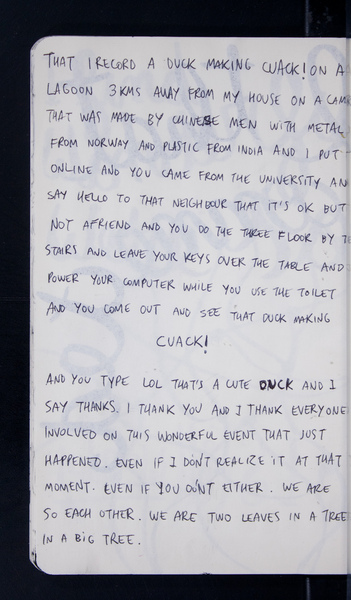 THAT I RECORD A DUCK MAKING CUACK! ON A
LAGOON 3KMS AWAY FROM MY HOUSE ON A
THAT WAS MADE BY CHINESE MEN WITH METAL
FROM NORWAY AND PLASTIC FROM INDIA AND I PUT
ONLINE AND YOU CAME FROM THE UNIVERSITY AN
SAY HELLO TO THAT NEIGHBOUR THAT IT'S OK BUT
NOT AFRIEND AND YOU DO THE THREE FLOOR BY
STAIRS AND LEAVE YOUR KEYS OVER THE TABLE AND
POWER YOUR COMPUTER WHILE YOU USE THE TOILET
AND YOU COME OUT AND SEE THAT DUCK MAKING
CUACK!
AND YOU TYPE LOL THAT'S A CUTE DUCK AND I
SAY THANKS. I THANK YOU AND I THANK EVERYONE
INVOLVED ON THIS WONDERFUL EVENT THAT JUST
HAPPENED. EVEN IF I DON'T REALIZE IT AT THAT
MOMENT. EVEN IF YOU DON'T EITHER. WE ARE
SO EACH OTHER. WE ARE TWO LEAVES IN A TREE
IN A BIG TREE.